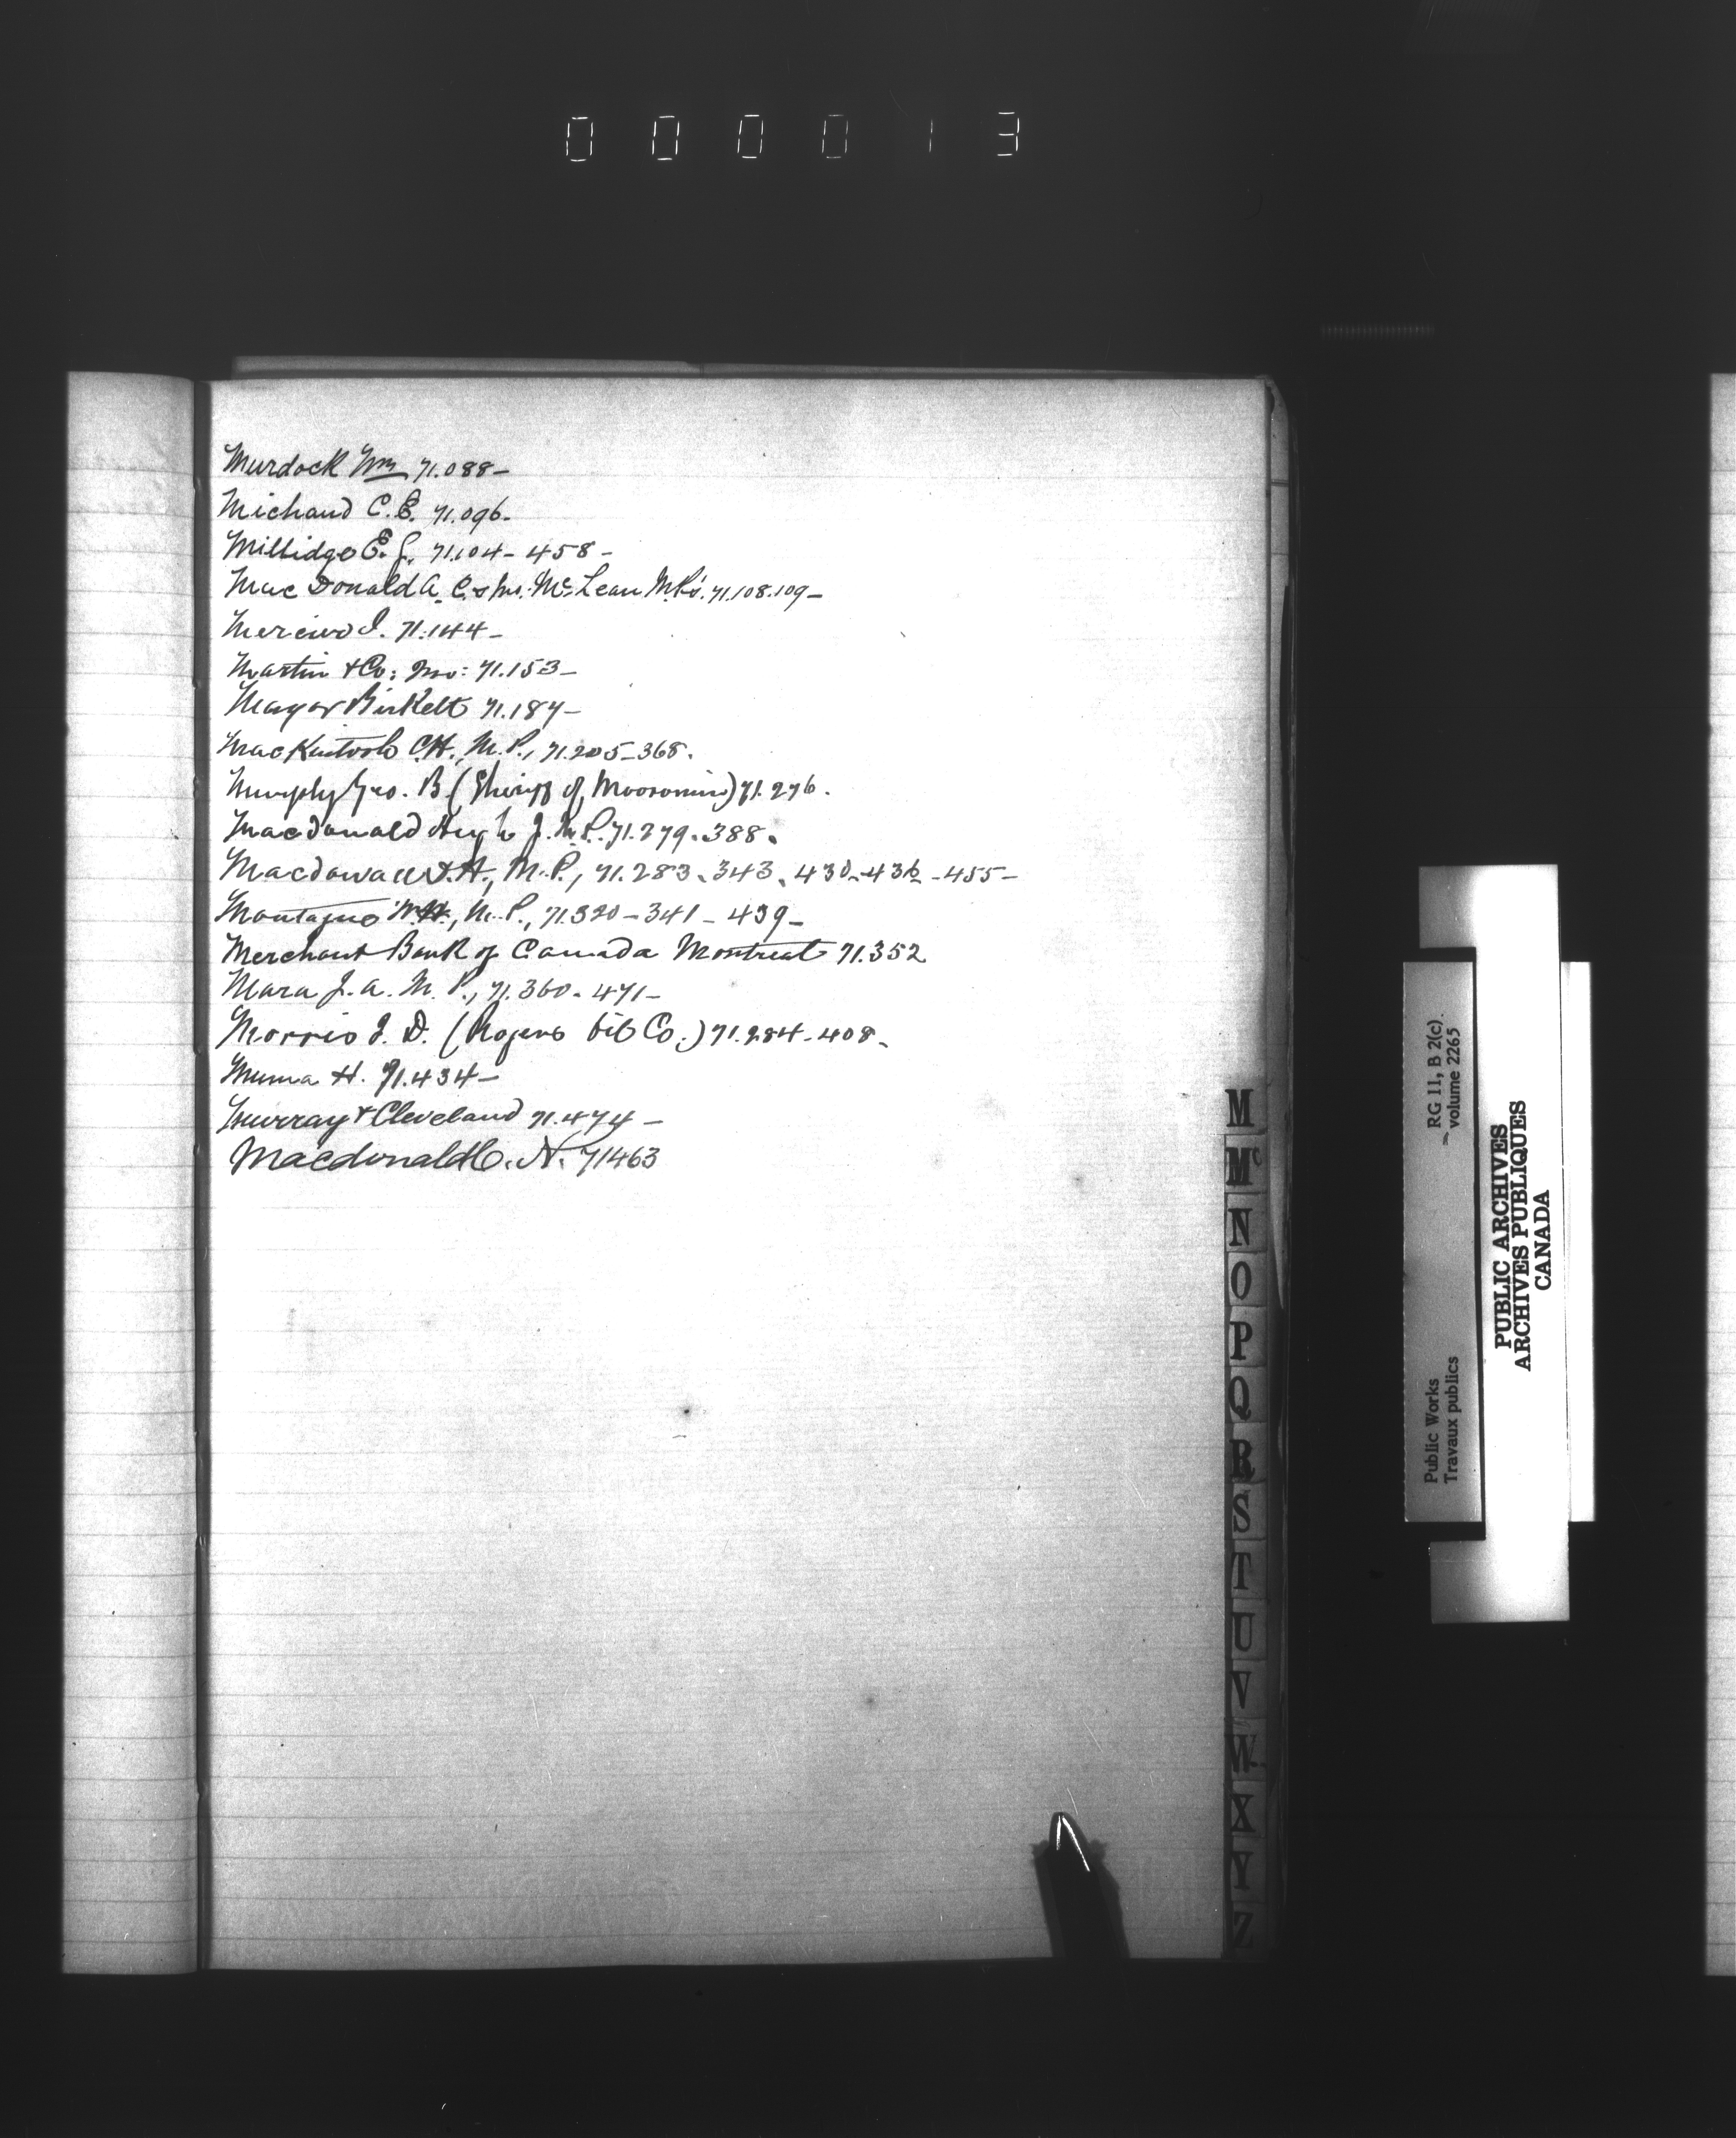 000013
Murdock Wm 71.088-
Michaud C.E. 71.096-
Millidge E.J. 71.104-458-
MacDonald A. C. & Mc. Lean M.P's. 71.108.109-
I. 71.144-
Martin & Co: Jno: 71.153-
Mayor Birkett 71.187-
MacKintosh C.H., M.P., 71.205-368.
Murphy Geo. B. (Sheriff of Moosomin) 71.276.
Macdonald Hugh J. M.P. 71.279.388.
Macdowall D.H., M.P., 71.283.343.430-436-455-
Montague W.H., M.P., 71.320-341-439-
Merchant Bank of Canada Montreal 71.352
Mara J.A. M.P., 71.360.471-
Morris J.D. (Rogers Oil Co.) 71.284.408-
Muma H. 71.434-
Murray & Cleveland 71.474-
Macdonald C. N. 71463
M
Mc
N
O
P
Q
R
S
T
U
V
W
X
Y
Z
RG 11, B 2(c)
volume 2265
Public Works
Travaux publics
PUBLIC ARCHIVES
ARCHIVES PUBLIQUES
CANADA